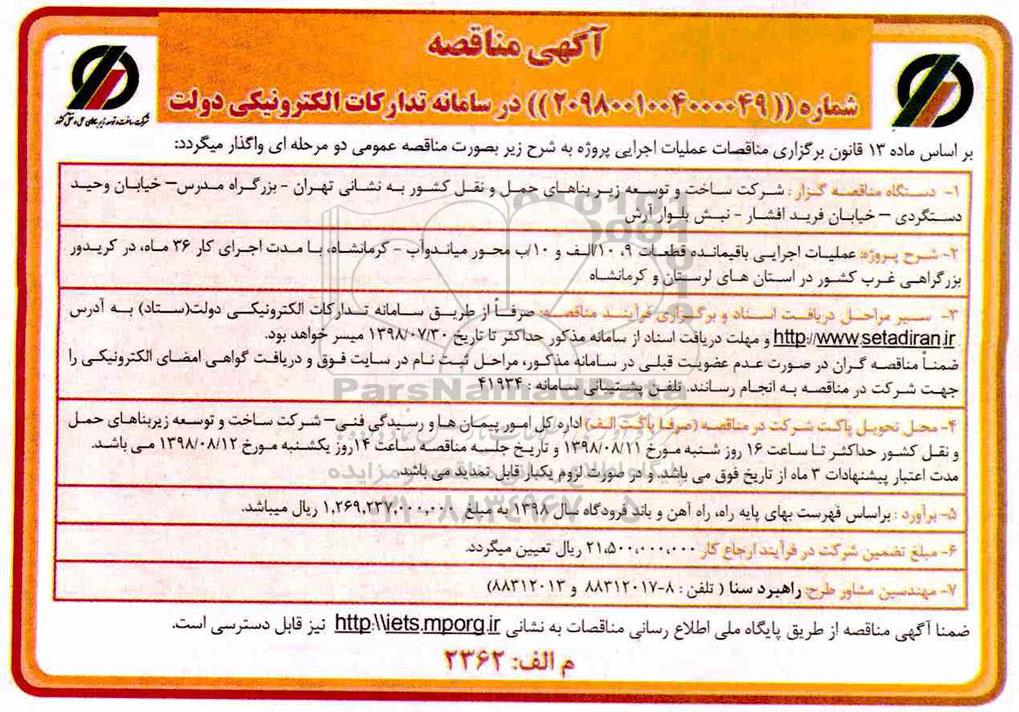 آگهی مناقصه
شماره ((۲۰۹۸۰۰۱۰۰۴۰۰۰۰۴۹)) در سامانه تدارکات الکترونیکی دولت
شرکت ساخت و توسعه زیربناهای حمل و نقل کشور
بر اساس ماده ۱۳ قانون برگزاری مناقصات عملیات اجرایی پروژه به شرح زیر بصورت مناقصه عمومی دو مرحله ای واگذار میگردد:
۱- دستگاه مناقصه گزار : شرکت ساخت و توسعه زیر بناهای حمل و نقل کشور به نشانی تهران - بزرگراه مدرس– خیابان وحید
دستگردی – خیابان فرید افشار - نبش بلوار آرش
۲- شرح پروژه: عملیات اجرایی باقیمانده قطعات ۹، ۱۰/الف و ۱۰/ب محور میاندوآب - کرمانشاه، با مدت اجرای کار ۳۶ ماه، در کریدور
بزرگراهی غرب کشور در استان های لرستان و کرمانشاه
۳- سیر مراحل دریافت اسناد و برگزاری فرآیند مناقصه: صرفاً از طریق سامانه تدارکات الکترونیکی دولت(ستاد) به آدرس
http://www.setadiran.ir و مهلت دریافت اسناد از سامانه مذکور حداکثر تا تاریخ ۱۳۹۸/۰۷/۳۰ میسر خواهد بود.
ضمناً مناقصه گران در صورت عدم عضویت قبلی در سامانه مذکور، مراحل ثبت نام در سایت فوق و دریافت گواهی امضای الکترونیکی را
جهت شرکت در مناقصه به انجام رسانند. تلفن پشتیبانی سامانه : ۴۱۹۳۴
ParsNamadData
۴- محل تحویل پاکت شرکت در مناقصه (صرفا پاکت الف) اداره کل امور پیمان ها و رسیدگی فنی– شرکت ساخت و توسعه زیربناهای حمل
و نقل کشور حداکثر تا ساعت ۱۶ روز شنبه مورخ ۱۳۹۸/۰۸/۱۱ و تاریخ جلسه مناقصه ساعت ۱۴روز یکشنبه مورخ ۱۳۹۸/۰۸/۱۲ می باشد.
مدت اعتبار پیشنهادات ۳ ماه از تاریخ فوق می باشد و در صورت لزوم یکبار قابل تمدید می باشد
۵- برآورد : براساس فهرست بهای پایه راه، راه آهن و باند فرودگاه سال ۱۳۹۸ به مبلغ ۱,۲۶۹,۲۳۷,۰۰۰,۰۰۰ ریال میباشد.
۰۲۱-۸۸۳۴۹۶۷۰-۵
۶- مبلغ تضمین شرکت در فرآیند ارجاع کار ۲۱,۵۰۰,۰۰۰,۰۰۰ ریال تعیین میگردد.
۷- مهندسین مشاور طرح: راهبرد سنا ( تلفن : ۸-۸۸۳۱۲۰۱۷ و ۸۸۳۱۲۰۱۳)
ضمنا آگهی مناقصه از طریق پایگاه ملی اطلاع رسانی مناقصات به نشانی http:\\iets.mporg.ir نیز قابل دسترسی است.
م الف: ۲۳۶۲